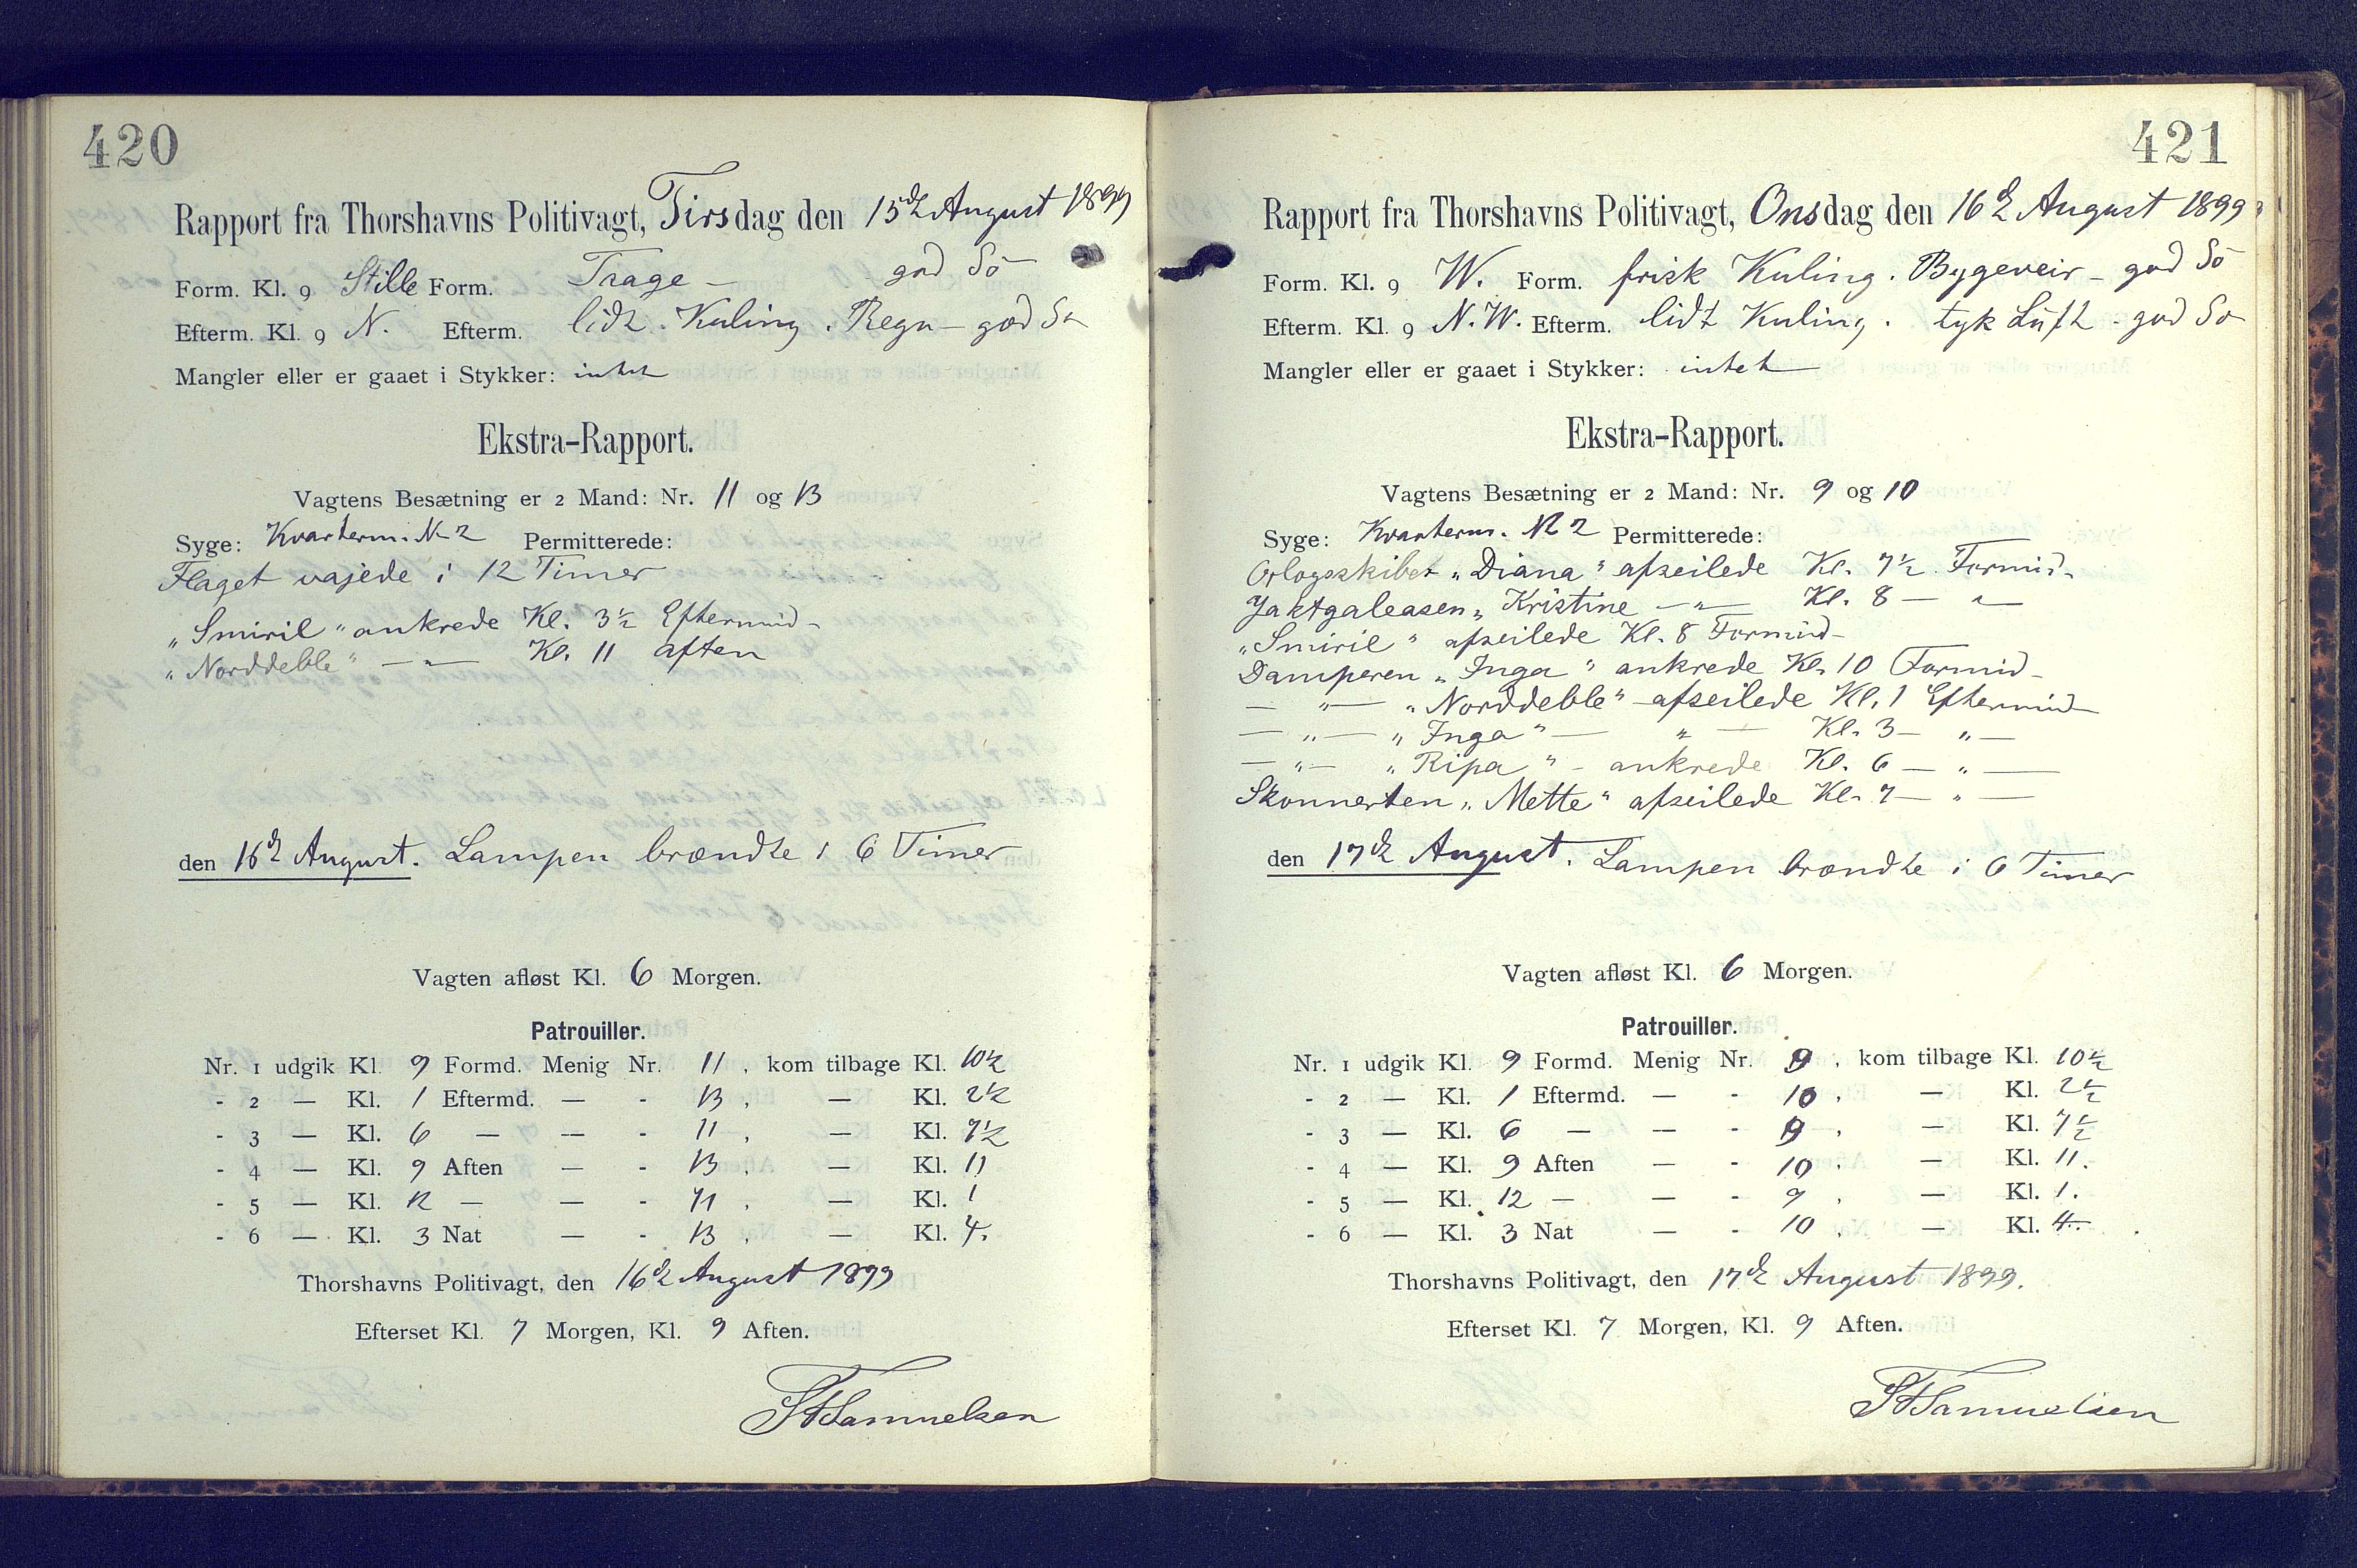 420
Rapport fra Thorshavns Politivagt, Tirsdag den 15de August 1899
Form. Kl. 9 Stille Form. Taage - god Sö
Efterm. Kl. 9 N. Efterm. lidt Kuling. Regn - god Sö
Mangler eller er gaaet i Stykker: intet
Ekstra-Rapport.
Vagtens Besætning er 2 Mand: Nr. 11 og 13
Syge: Kvarterm. No 2 Permitterede:
Flaget vajede i 12 Timer
„Smiril" ankrede Kl. 3½ Eftermid-
„Norddeble" — " — Kl. 11 aften
den 16de August. Lampen brændte i 6 Timer
Vagten afløst Kl. 6 Morgen.
Patrouiller.
Nr. 1 udgik Kl. 9 Formd. Menig Nr. 11, kom tilbage Kl. 10½
- 2 — Kl. 1 Eftermd. — - 13, — Kl. 2½
- 3 — Kl. 6 — — - 11, — Kl. 7½
- 4 — Kl. 9 Aften — - 13, — Kl. 11
- 5 — Kl. 12 — — - 11, — Kl. 1
- 6 — Kl. 3 Nat — - 13, — Kl. 4.
Thorshavns Politivagt, den 16de August 1899
Efterset Kl. 7 Morgen, Kl. 9 Aften.
Samuelsen
421
Rapport fra Thorshavns Politivagt, Onsdag den 16de August 1899
Form. Kl. 9 W. Form. frisk Kuling. Bygeveir - god Sö
Efterm. Kl. 9 N.W. Efterm. lidt Kuling. tyk Luft - god Sö
Mangler eller er gaaet i Stykker: intet
Ekstra-Rapport.
Vagtens Besætning er 2 Mand: Nr. 9 og 10
Syge: Kvarterm. No 2 Permitterede:
Orlogsskibet „Diana" afseilede Kl. 7½ Formid-
Jaktgaleasen „Kristine — " — Kl. 8 — " —
„Smiril" afseilede Kl. 8 Formid-
Damperen „Inga" ankrede Kl. 10 Formid-
— " — „Norddeble" afseilede Kl. 1 Eftermid-
— " — „Inga" — " — Kl. 3 — " —
— " — „Ripa" - ankrede Kl. 6 — " —
Skonnerten „Mette" afseilede Kl. 7 — " —
den 17de August. Lampen brændte i 6 Timer
Vagten afløst Kl. 6 Morgen.
Patrouiller.
Nr. 1 udgik Kl. 9 Formd. Menig Nr. 9, kom tilbage Kl. 10½
- 2 — Kl. 1 Eftermd. — - 10, — Kl. 2½
- 3 — Kl. 6 — — - 9, — Kl. 7½
- 4 — Kl. 9 Aften — - 10, — Kl. 11.
- 5 — Kl. 12 — — - 9, — Kl. 1.
- 6 — Kl. 3 Nat — - 10, — Kl. 4.
Thorshavns Politivagt, den 17de August 1899.
Efterset Kl. 7 Morgen, Kl. 9 Aften.
Samuelsen